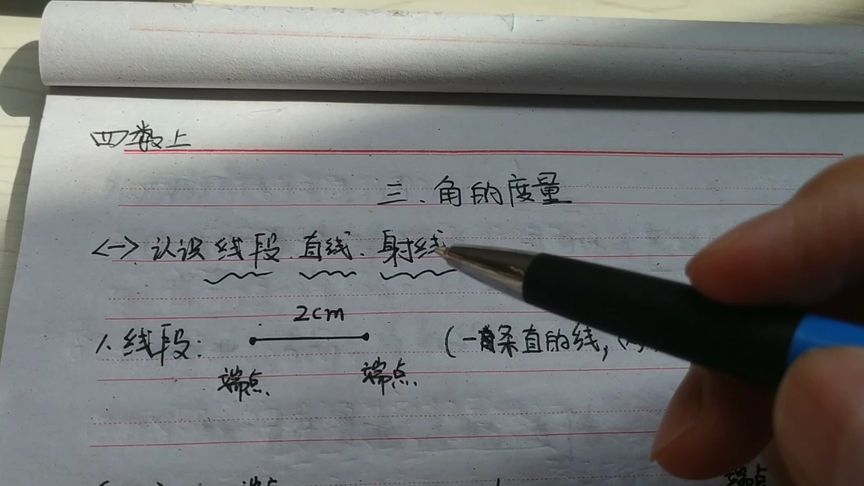 四数上
三.角的度量
<一>认识线段.直线.射线
2cm
1.线段: (一条直的线,
端点 端点.
端点 端点